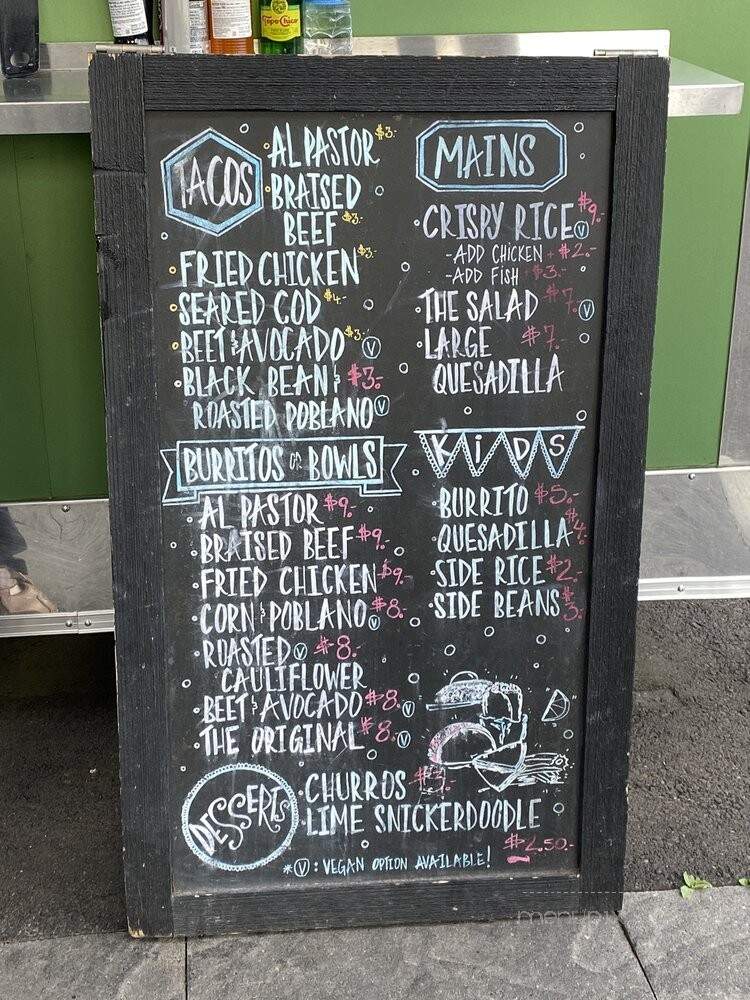 Topo Chico
TACOS
AL PASTOR $3.-
BRAISED
BEEF $3.-
FRIED CHICKEN $3.-
SEARED COD $4.-
BEET & AVOCADO $3.- Ⓥ
BLACK BEAN & $3.-
ROASTED POBLANO Ⓥ
BURRITOS OR BOWLS
AL PASTOR $9.-
BRAISED BEEF $9.-
FRIED CHICKEN $9.-
CORN & POBLANO $8.- Ⓥ
ROASTED Ⓥ $8.-
CAULIFLOWER
BEET & AVOCADO $8.- Ⓥ
THE ORIGINAL $8.- Ⓥ
MAINS
CRISPY RICE $9.- Ⓥ
-ADD CHICKEN + $2.-
-ADD FISH + $3.-
THE SALAD $7.- Ⓥ
LARGE $7.-
QUESADILLA
KiDS
BURRITO $5.-
QUESADILLA $4.-
SIDE RICE $2.-
SIDE BEANS $3.-
DESSERTS
CHURROS $3.-
LIME SNICKERDOODLE
$2.50-
*Ⓥ: VEGAN OPTION AVAILABLE!